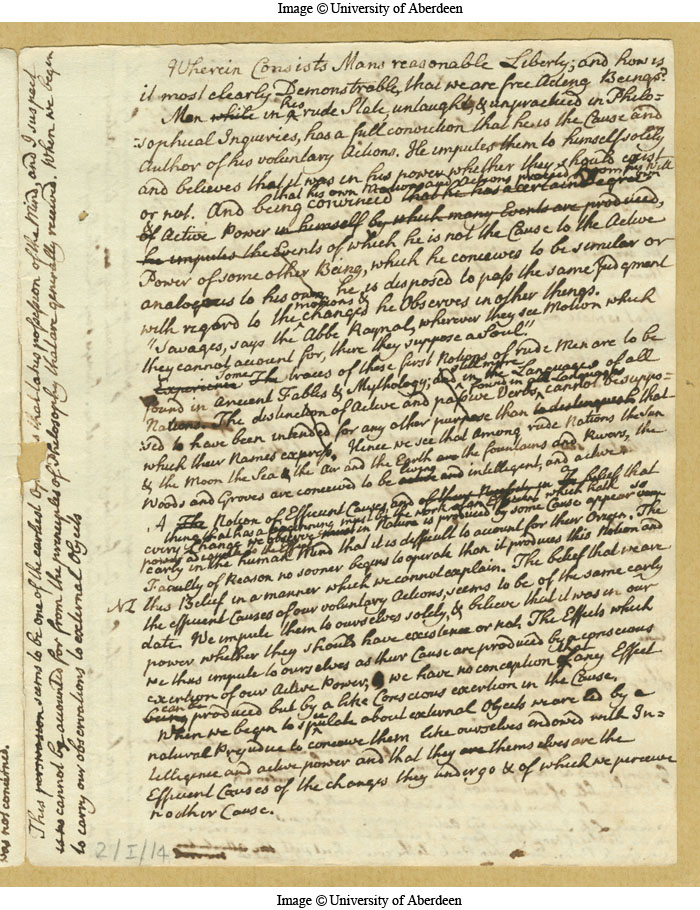 Image © University of Aberdeen
Wherein Consists Mans reasonable Liberty; and how is
it most clearly Demonstrable, that we are free Acting Beings?
Men while in his rude State, untaught, & unpractised in Philo-
-sophical Inquiries, has a full conviction that he is the Cause and
Author of his voluntary Actions. He imputes them to himself solely,
and believes that it was in his power whether they should exist
that his own Motions and Actions proceed from his Will
or not. And being convinced that he has a certain Degree
of Active Power in himself by which many Events are produced,
he imputes the Events of which he is not the Cause to the Active
Power of some other Being, which he conceives to be similar or
analogous to his own, he is disposed to pass the same Judgment
motions &
with regard to the changes he Observes in other things.
"Savages, says the Abbe Raynal, wherever they see Motion which
they cannot account for, there they suppose a Soul."
Some
Experience The traces of these first Notions of rude Men are to be
found in ancient Fables & Mythology; and in the Languages of all
Nations. The distinction of Active and passive Verbs, found in all Languages cannot be suppo-
sed to have been intended for any other purpose than to distinguish that
which their Names express. Hence we see that among rude Nations the Sun
& the Moon the Sea & the Air and the Earth are the fountains and Rivers, the
Woods and Groves are conceived to be living active and intelligent, and active
A The Notion of Efficient Causes, and of belief that
thing that has a beginning must be the work of an Efficient which hath
every Change we observe in Nature is produced by some Cause appear so
power
early in the human Mind that it is difficult to account for their Origin. The
Faculty of Reason no sooner begins to operate than it produces this Notion and
this Belief in a manner which we cannot explain. The belief that we are
the efficient Causes of our voluntary Actions, seems to be of the same early
date. We impute them to ourselves solely, & believe that it was in our
power whether they should have existence or not. The Effects which
we thus impute to ourselves as their Cause are produced by a conscious
exertion of our Active Power, & we have no conception that any Effect
can be
being produced but by a like Conscious exertion in the Cause.
When we begin to speculate about external Objects we are led by a
natural Prejudice to conceive them like ourselves endowed with In-
telligence and active power and that they are themselves are the
Efficient Causes of the changes they undergo & of which we perceive
no other Cause.
2/I/14
This permission seems to be one of the earliest that takes possession of the Mind, and I suspect
is no cannot be accounted for from the principles of Philosophy that are generally received. When we begin
to carry our observations to external Objects
was not concerned.
Image © University of Aberdeen